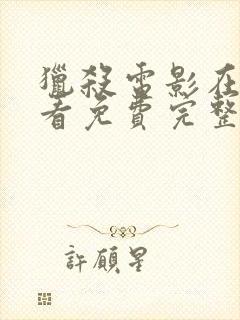 獵殺雷影在
看免費完整
許願星